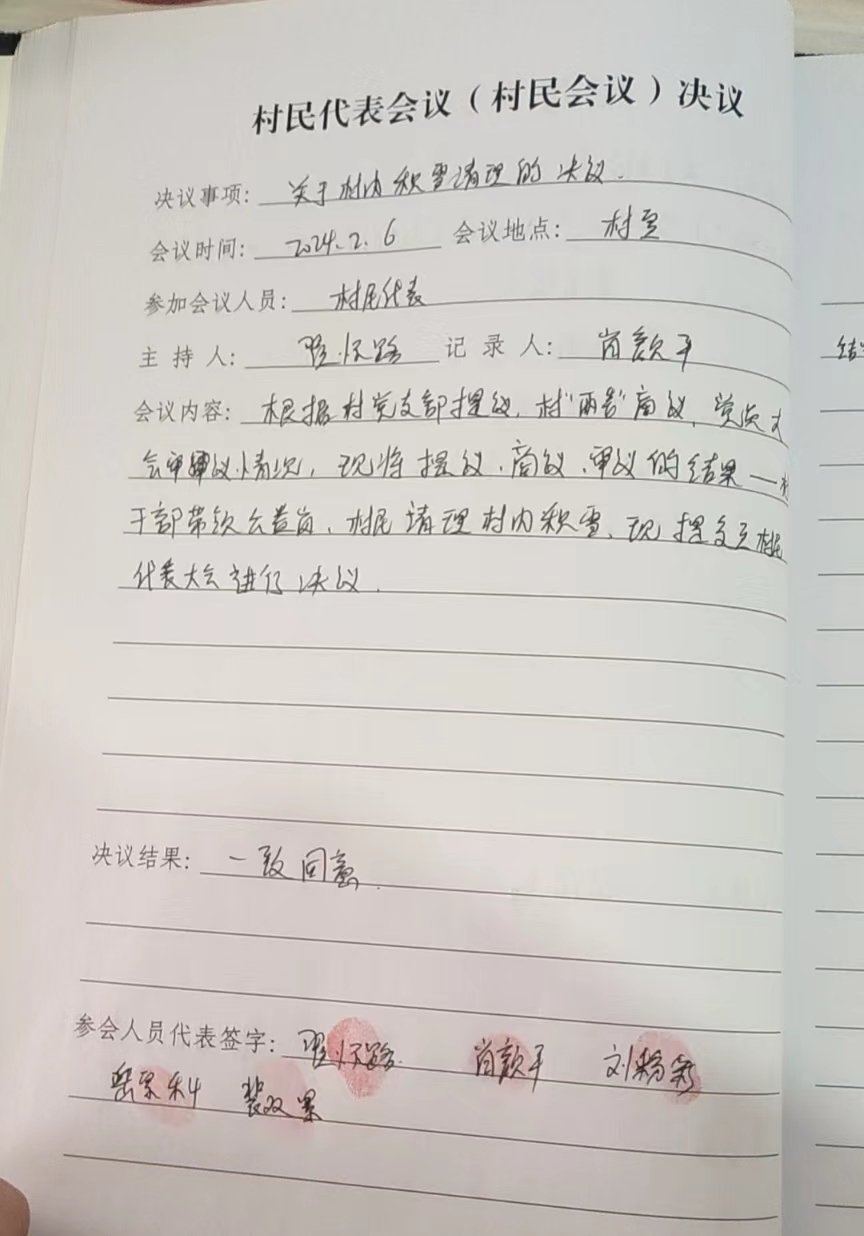 村民代表会议（村民会议）决议
决议事项：关于村内积雪清理的决议.
会议时间：2024.2.6 会议地点：村里
参加会议人员：村民代表
主持人： 记录人：肖颜平
会议内容：根据村党支部提议，村"两委"商议，党员大
会审议情况，现将提议、商议、审议的结果——村
干部带领公益岗、村民清理村内积雪，现提交至村民
代表大会进行决议.
决议结果：一致同意.
参会人员代表签字： 肖颜平 刘
结